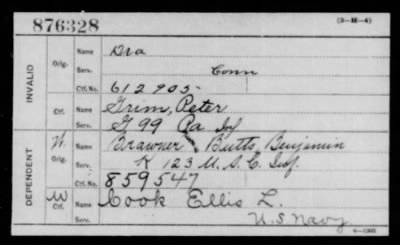 876328
(3-M-4)
INVALID
Orig.
Name Ora
Serv. Conn
Ctf. No. 612905
Ctf.
Name Grim, Peter
Serv. G 99 Pa Inf
DEPENDENT
W.
Orig.
Name Brawner Butts, Benjamin
Serv. K 123 U.S.C. Inf.
Ctf. No. 859547
W
Ctf.
Name Cook Ellis L.
Serv. U.S. Navy